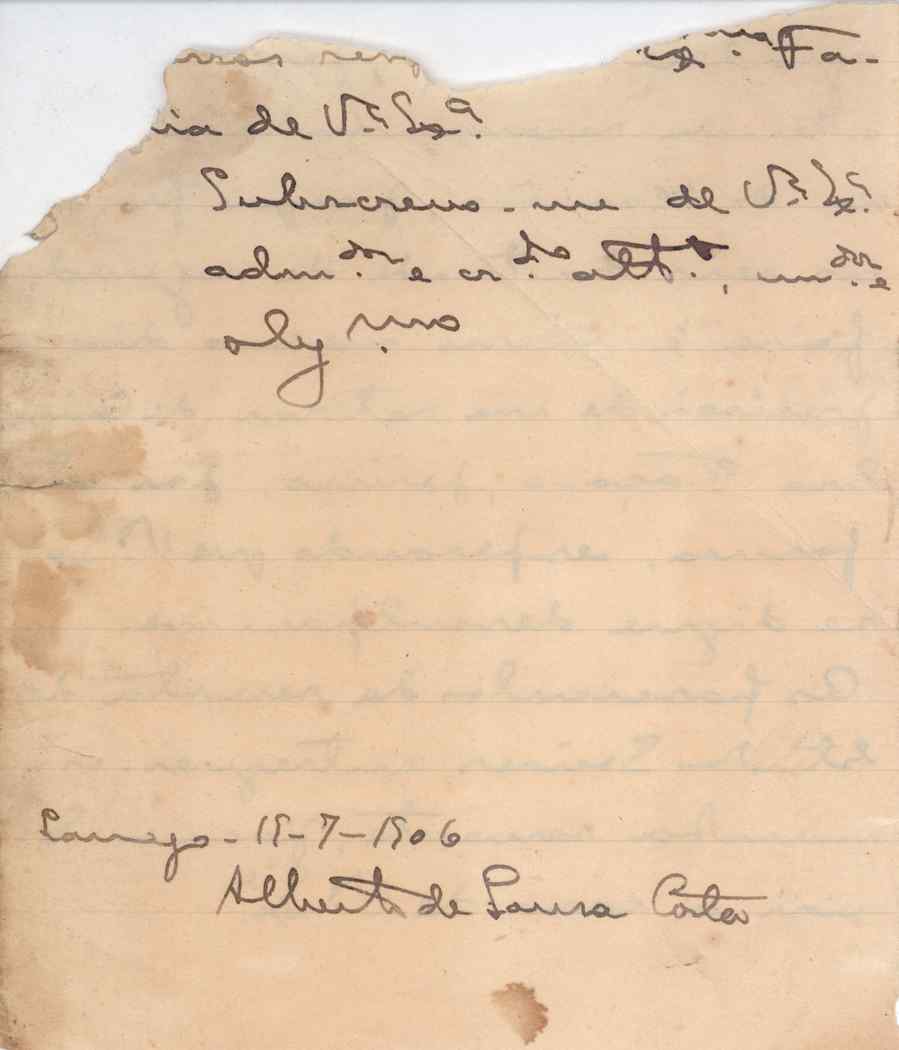 Ex.ma Fa-
lia de V.ª Ex.ª
Subscrevo-me de V.ª Ex.ª
adm.dor e cr.do att.to, ven.dor e
obg.mo
Lamego - 19-7-1906
Alberto de Sousa Costa